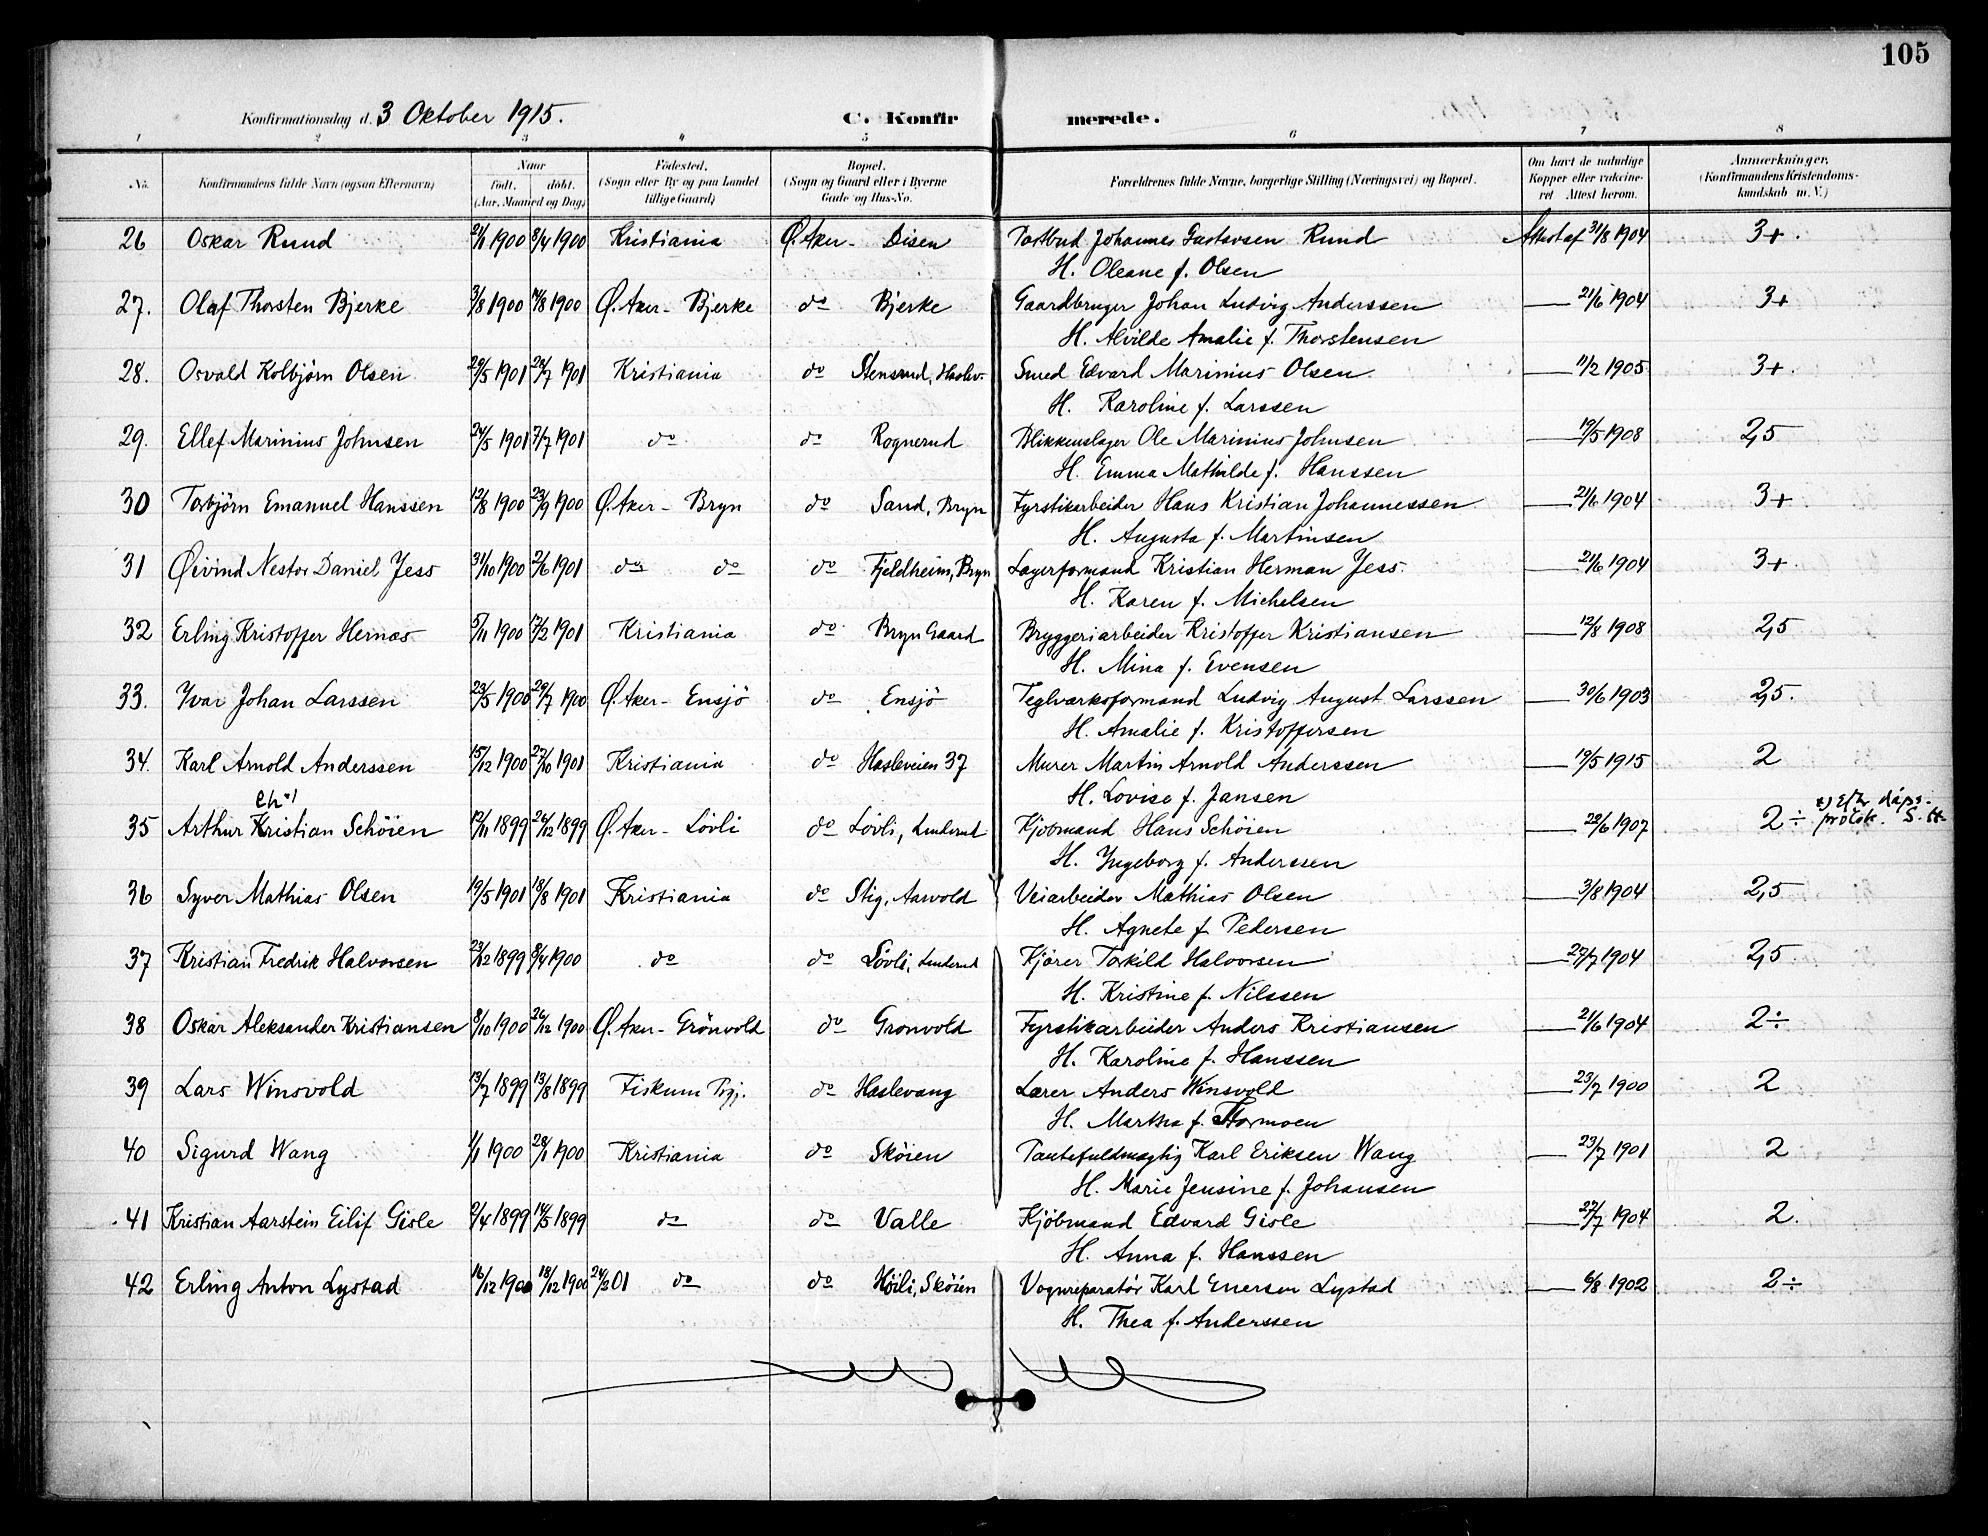 105
Konfirmationsdag d. 3 Oktober 1915.
C. Konfirmerede.
1 2 3 4 5 6 7 8
No. Konfirmandens fulde Navn (ogsaa Efternavn) Naar født. døbt. (Aar, Maaned og Dag) Fødested. (Sogn eller By og paa Landet tillige Gaard) Bopæl. (Sogn og Gaard eller i Byerne Gade og Hus-No. Forældrenes fulde Navne, borgerlige Stilling (Næringsvei) og Bopæl. Om havt de naturlige Kopper eller vakcineret Attest herom. Anmærkninger. (Konfirmandens Kristendomskundskab m. V.)
26 Oskar Rund 1900 8/4 1900 Kristiania Ø. Aker - Disen Postbud Johannes Gustavsen Rund Attest af 31/8 1904 3+.
H. Oleane f. Olsen
27. Olaf Thorsten Bjerke 3/8 1900 1900 Ø. Aker - Bjerke do Bjerke Gaardbruger Johan Ludvig Anderssen — 21/6 1904 3+
H. Alvilde Amalie f. Thorstensen
28. Osvald Kolbjörn Olsen 1901 28/7 1901 Kristiania do Stensrud, Haslev. Smed Edvard Marinius Olsen — 11/2 1905 3+.
H. Karoline f. Larssen
29. Ellef Marinius Johnsen 24/5 1901 7/7 1901 do do Rognerud Blikkenslager Ole Marinius Johnsen — 19/5 1908 2,5
H. Emma Mathilde f. Hanssen
30 Torbjörn Emanuel Hanssen 12/8 1900 23/9 1900 Ø. Aker - Bryn do Sand, Bryn Fyrstikarbeider Hans Kristian Johannessen — 21/6 1904 3+
H. Augusta f. Martinsen
31 Øivind Nestor Daniel Jess 31/10 1900 2/6 1901 do do do Fjeldheim, Bryn Lagerformand Kristian Herman Jess. — 21/6 1904 3+.
H. Karen f. Michelsen
32 Erling Kristoffer Hernæs 5/11 1900 17/2 1901 Kristiania do Bryn Gaard Bryggeriarbeider Kristoffer Kristiansen — 12/8 1908 2,5
H. Mina f. Evensen
33. Yvar Johan Larssen 23/5 1900 29/7 1900 Ø. Aker - Ensjö do Ensjö Teglværksformand Ludvig August Larssen — 30/6 1903 2,5.
H. Amalie f. Kristoffersen
34. Karl Arnold Anderssen 15/12 1900 27/10 1901 Kristiania do Hasleveien 37 Murer Martin Arnold Anderssen — 19/5 1915 2
H. Lovise f. Jansen
Ch
35 Arthur Kristian Schöien 12/11 1899 24/12 1899 Ø. Aker - Lövli do Lövli, Linderud Kjöbmand Hans Schöien — 22/6 1907 2÷ x) efter dåps-
protok. S.
H. Yngeborg f. Anderssen
36 Syver Mathias Olsen 19/5 1901 18/8 1901 Kristiania do Stig, Aarvold Veiarbeider Mathias Olsen — 3/8 1904 2,5
H. Agnete f. Pedersen
37 Kristian Fredrik Halvorsen 23/12 1899 8/4 1900 do do Lövli, Linderud Kjörer Torkild Halvorsen — 27/7 1904 2,5.
H. Kristine f. Nilssen
38 Oskar Aleksander Kristiansen 8/10 1900 26/12 1900 Ø. Aker - Grönvold do Gronvold Fyrstikarbeider Anders Kristiansen — 21/6 1904 2÷
H. Karoline f. Hanssen
39 Lars Winsvold 13/7 1899 13/8 1899 Fiskum Pgj. do Haslevang Lærer Anders Winsvold — 23/7 1900 2
H. Martha f. Stormoen
40 Sigurd Wang 1/1 1900 28/1 1900 Kristiania do Sköien Pantefuldmægtig Karl Eriksen Wang — 23/7 1901 2
H. Marie Jensine f. Johansen
41 Kristian Aarstein Eilif Gisle 2/4 1899 14/5 1899 do do Valle Kjöbmand Edvard Gisle — 27/7 1904 2.
H. Anna f. Hanssen
42 Erling Anton Lystad 16/12 1900 18/12 1900 24/3 01 do do Höili, Sköien Vognreparatör Karl Enersen Lystad — 6/8 1902 2÷
H. Thea f. Anderssen